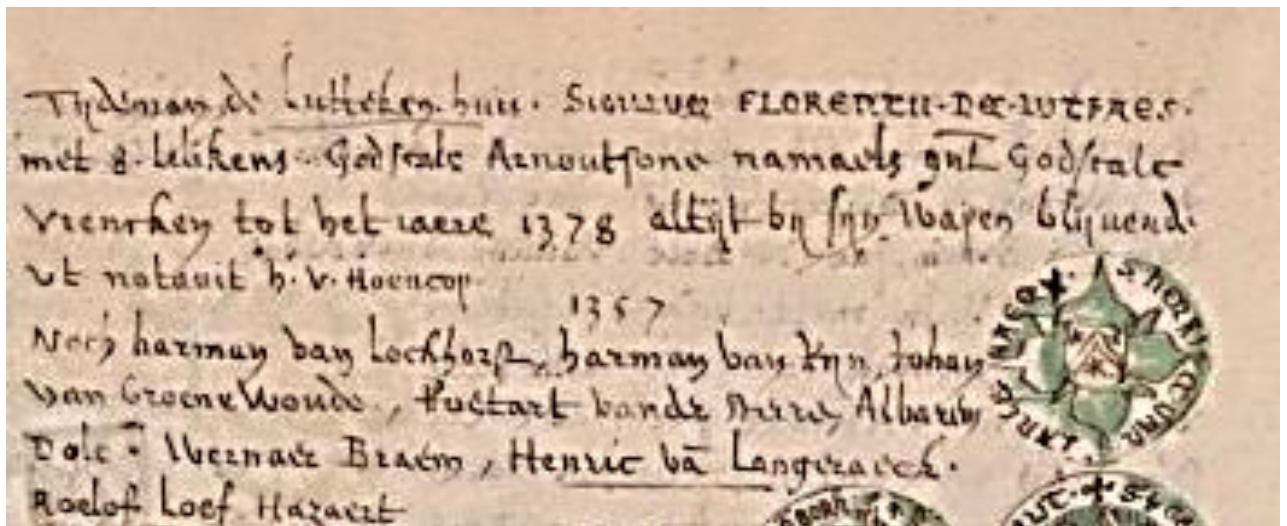 Tydeman de Lutteken huis. Sigillum FLORENCII·DE·LUTFRES.
met 8. lelikens. Godscalc Arnoutsone namaels gnt Godscalc
Vrencken tot het iaere 1378 altijt by syn Wapen blijuend.
vt notauit h. v. Hoencop
1357
Noch harman van Lockhorst, harman van Ryn, Johan
van Groene Woude, van Albarin
Dole. Wernaer Braem, Henric vā Langeraeck.
Roelof Loef Hazaert